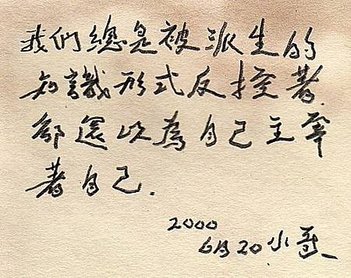 我們總是被派生的
知識形式反控著
卻還以為自己主宰
著自己.
2000
6月20小